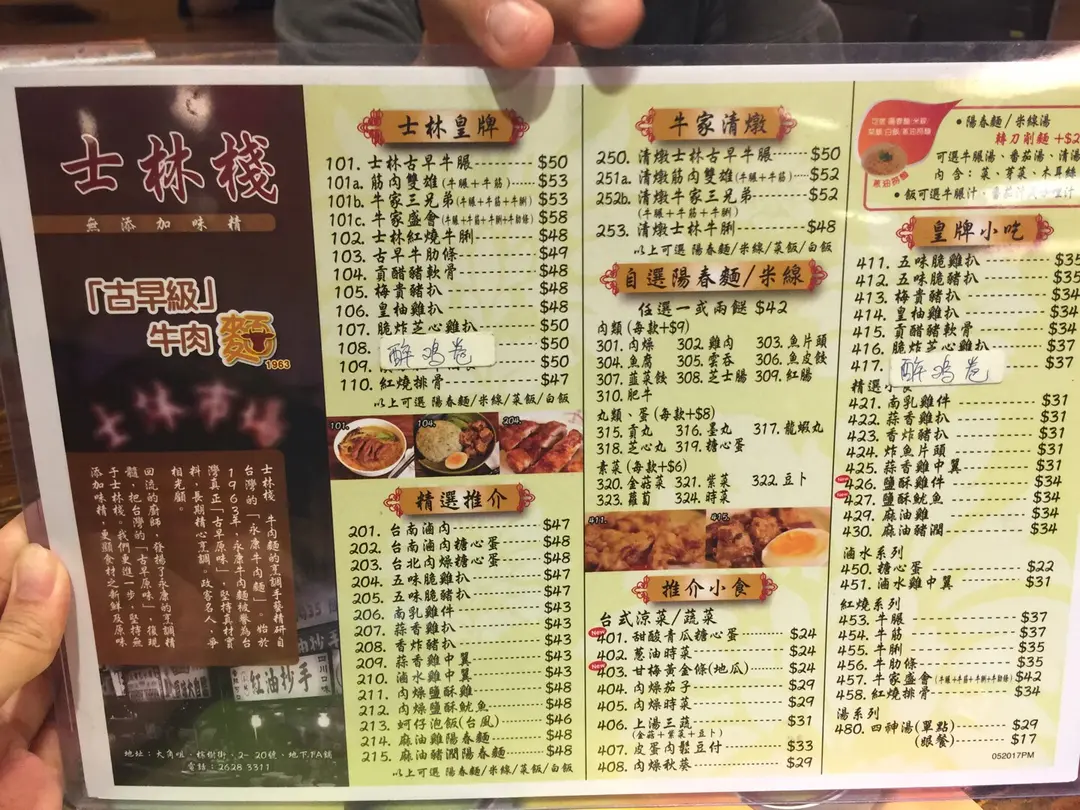 士林棧
無添加味精
「古早級」
牛肉麵
1963
士林棧 牛肉麵的烹調手藝精研自
台灣的「永康牛肉麵」，始於
1963年，永康牛肉麵被譽為台
灣真正「古早原味」，堅持真材實
料，長期精心烹調。政客名人，爭
相光顧。
回流的廚師，發揚了永康的烹調精
髓，把台灣的「古早原味」，復現
于士林棧。我們更進一步，堅持無
添加味精，更顯食材之新鮮及原味
紅油抄手
地址：大角咀，棕樹街，2-20號，地下FA舖
電話：2628 3311
士林皇牌
101. 士林古早牛腒 $50
101a. 筋肉雙雄(牛腒+牛筋) $53
101b. 牛家三兄弟(牛腒+牛筋+牛脷) $53
101c. 牛家盛會(牛腒+牛筋+牛脷+牛肋條) $58
102. 士林紅燒牛脷 $48
103. 古早牛肋條 $49
104. 貢醋豬軟骨 $48
105. 梅貴豬扒 $48
106. 皇柚雞扒 $48
107. 脆炸芝心雞扒 $50
108. 醉鸡卷 $50
109. $50
110. 紅燒排骨 $47
以上可選 陽春麵/米線/菜飯/白飯
101. 104. 204.
精選推介
201. 台南滷肉 $47
202. 台南滷肉糖心蛋 $48
203. 台北肉燥糖心蛋 $48
204. 五味脆雞扒 $47
205. 五味脆豬扒 $47
206. 南乳雞件 $43
207. 蒜香雞扒 $43
208. 香炸豬扒 $43
209. 蒜香雞中翼 $43
210. 滷水雞中翼 $43
211. 肉燥鹽酥雞 $48
212. 肉燥鹽酥魷魚 $48
213. 蚵仔泡飯(台風) $46
214. 麻油雞陽春麵 $48
215. 麻油豬潤陽春麵 $48
以上可選 陽春麵/米線/菜飯/白飯
牛家清燉
250. 清燉士林古早牛腒 $50
251a. 清燉筋肉雙雄(牛腒+牛筋) $52
252b. 清燉牛家三兄弟 $52
(牛腒+牛筋+牛脷)
253. 清燉士林牛脷 $48
以上可選 陽春麵/米線/菜飯/白飯
自選陽春麵/米線
任選一或兩餸 $42
肉類(每款+$9)
301. 肉燥 302. 雞肉 303. 魚片頭
304. 魚腐 305. 雲吞 306. 魚皮餃
307. 韮菜餃 308. 芝士腸 309. 紅腸
310. 肥牛
丸類、蛋(每款+$8)
315. 貢丸 316. 墨丸 317. 龍蝦丸
318. 芝心丸 319. 糖心蛋
素菜(每款+$6)
320. 金菇菜 321. 紫菜 322. 豆卜
323. 蘿蔔 324. 時菜
411. 415.
推介小食
台式涼菜/蔬菜
New 401. 甜酸青瓜糖心蛋 $24
402. 蔥油時菜 $24
New 403. 甘梅黃金條(地瓜) $24
404. 肉燥茄子 $29
405. 肉燥時菜 $29
406. 上湯三蔬 $31
(金菇+紫菜+豆卜)
407. 皮蛋肉鬆豆付 $33
408. 肉燥秋葵 $29
蔥油撈麵
• 陽春麵/米線湯
轉刀削麵 +$2
可選牛腒湯、番茄湯、清湯
內含：菜、芽菜、木耳絲
• 飯可選牛腒汁、
皇牌小吃
411. 五味脆雞扒 $35
412. 五味脆豬扒 $35
413. 梅貴豬扒 $34
414. 皇柚雞扒 $34
415. 貢醋豬軟骨 $34
416. 脆炸芝心雞扒 $37
417. 醉鸡卷 $37
精選小食
421. 南乳雞件 $31
422. 蒜香雞扒 $31
423. 香炸豬扒 $31
424. 炸魚片頭 $31
425. 蒜香雞中翼 $31
New 426. 鹽酥雞件 $34
New 427. 鹽酥魷魚 $34
429. 麻油雞 $34
430. 麻油豬潤 $34
滷水系列
450. 糖心蛋 $22
451. 滷水雞中翼 $31
紅燒系列
453. 牛腒 $37
454. 牛筋 $37
455. 牛脷 $35
456. 牛肋條 $35
457. 牛家盛會(牛腒+牛筋+牛脷+牛肋條) $42
458. 紅燒排骨 $34
湯系列
480. 四神湯(單點) $29
(跟餐) $17
052017PM